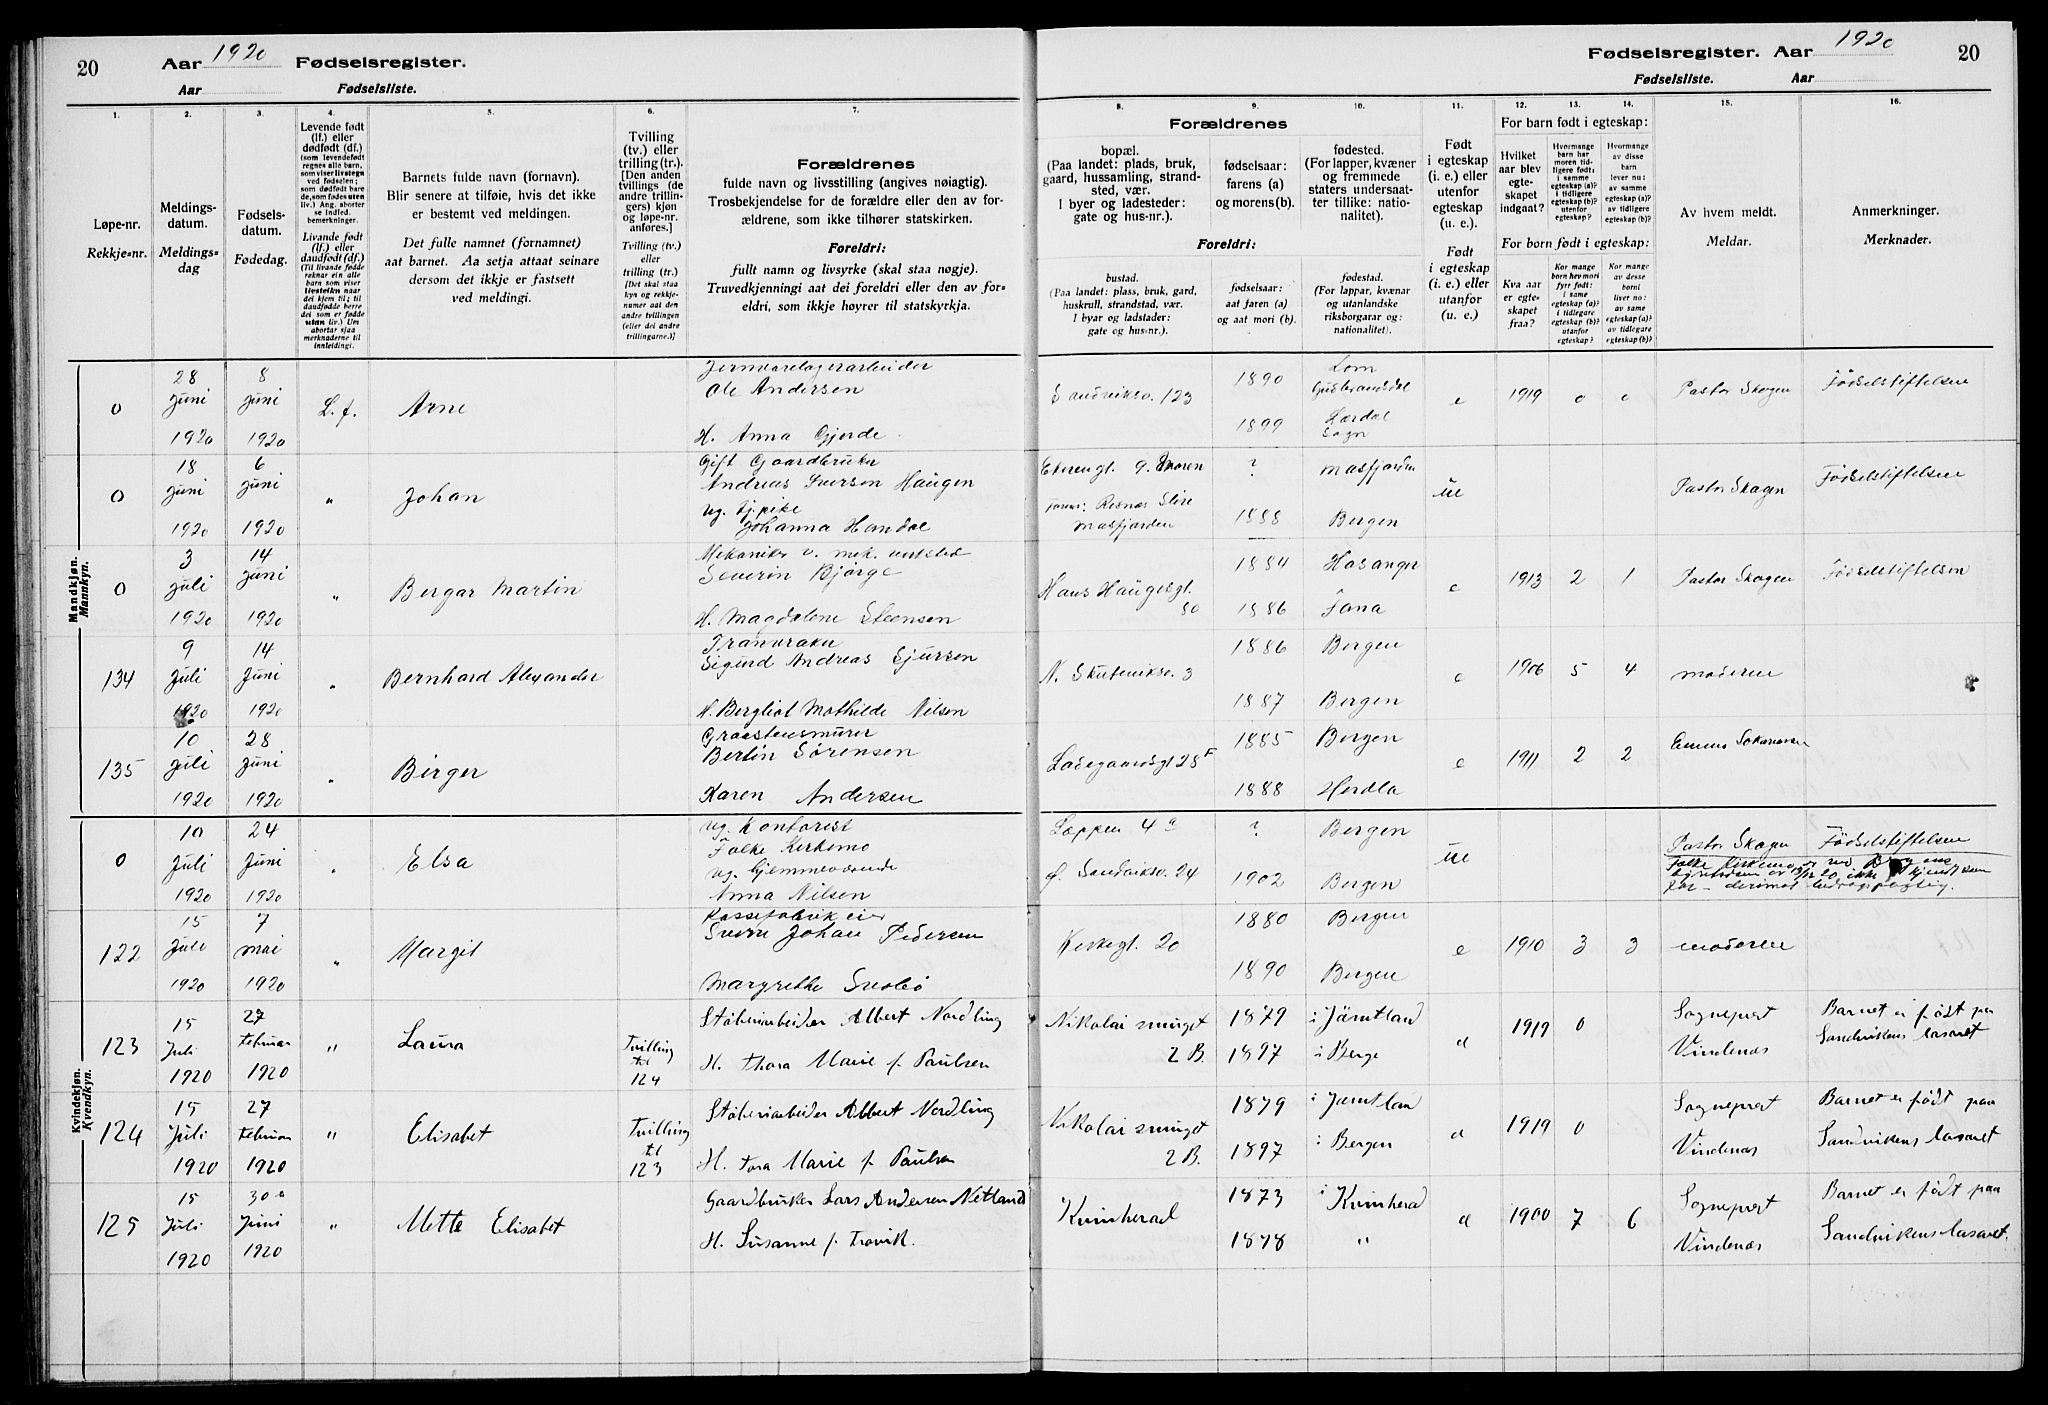 20
Aar 1920 Fødselsregister.
Aar Fødselsliste.
Fødselsregister. Aar 1920
20
Fødselsliste. Aar
1.
2.
3.
4.
5.
6.
7.
8.
9.
10.
11.
12.
13.
14.
15.
16.
Løpe-nr.
Rekkje-nr.
Meldings-
datum.
Meldings-
dag
Fødsels-
datum.
Fødedag.
Levende født
(lf.) eller
dødfødt (df.)
(som levendefødt
regnes alle barn,
som viser livstegn
ved fødselen;
som dødfødt bare
de, som fødes uten
liv.) Ang. aborter
se indled.
bemerkninger.
Livande født
(lf.) eller
daudfødt (df.)
(Til livande fødde
reknar ein alle
barn som viser
livsteikn naar
dei kjem til; til
daudfødde berre
dei som er fødde
utan liv.) Um
abortar sjaa
merknaderne til
innleidingi.
Barnets fulde navn (fornavn).
Blir senere at tilføie, hvis det ikke
er bestemt ved meldingen.
Det fulle namnet (fornamnet)
aat barnet. Aa setja attaat seinare
dersom det ikkje er fastsett
ved meldingi.
Tvilling
(tv.) eller
trilling (tr.).
[Den anden
tvillings (de
andre trillin-
gers) kjøn
og løpe-nr.
anføres.]
Tvilling (tv.)
eller
trilling (tr.)
[Det skal staa
kyn og rekkje-
numer aat den
andre tvillingen
(eller dei andre
trillingarne.)]
Forældrenes
fulde navn og livsstilling (angives nøiagtig).
Trosbekjendelse for de forældre eller den av for-
ældrene, som ikke tilhører statskirken.
Foreldri:
fullt namn og livsyrke (skal staa nøgje).
Truvedkjenningi aat dei foreldri eller den av for-
eldri, som ikkje høyrer til statskyrkja.
Forældrenes
bopæl.
(Paa landet: plads, bruk,
gaard, hussamling, strand-
sted, vær.
I byer og ladesteder:
gate og hus-nr.).
fødselsaar:
farens (a)
og morens (b).
fødested.
(For lapper, kvæner
og fremmede
staters undersaat-
ter tillike: natio-
nalitet).
Foreldri:
bustad.
(Paa landet: plass, bruk, gard,
huskrull, strandstad, vær.
I byar og ladstader:
gate og hus-nr.).
fødselsaar:
aat faren (a)
og aat mori (b).
fødestad.
(For lappar, kvænar
og utanlandske
riksborgarar og:
nationalitet).
Født
i egteskap
(i. e.) eller
utenfor
egteskap
(u. e.).
Født
i egteskap
(i. e.) eller
utanfor
(u. e.).
For barn født i egteskap:
Hvilket
aar blev
egte-
skapet
indgaat?
Hvormange
barn har
moren tid-
ligere født:
i samme
egteskap (a)?
i tidligere
egteskap (b)?
utenfor
egteskap?
Hvormange
av disse
barn
lever nu:
av samme
egteskap (a)?
av tidligere
egteskap (b)?
For born født i egteskap:
Kva aar
er egte-
skapet
fraa?
Kor mange
born hev mori
fyrr født:
i same
egteskap (a)?
i tidlegare
egteskap (b)?
utanfor
egteskap?
Kor mange
av desse
borni
liver no:
av same
egteskap (a)?
av tidlegare
egteskap (b)?
Av hvem meldt.
Meldar.
Anmerkninger.
Merknader.
Mandkjøn.
Mannkyn.
0
28 juni 1920
8 juni 1920
L. f.
Arne
Jernvarelagerarbeider
Ole Andersen
H. Anna Gjerde.
Sandviksv. 123
1890
1899
Lom
Gudbrandsdal
Lærdal
Sogn
e
1919 0 0
Pastor Skagen
Fødselstiftelsen
0
18 juni 1920
6 juni 1920
"
Johan
Gift Gaardbruker
Andreas Iversen Haugen
ug. tj.pike
Johanna Handal
?
1888
Masfjorden
Masfjorden
Bergen
ue
Pastor Skagen
Fødselstiftelsen
0
3 juli 1920
14 juni 1920
"
Bergar Martin
Mekaniker v. mek. verksted
Severin Bjørge
H. Magdalene Steensen
Hans Haugesgt.
80
1884
1886
Hosanger
Fana
e
1913 2 1
Pastor Skagen
Fødselstiftelsen
134
9 juli 1920
14 juni 1920
"
Bernhard Alexander
Tranvraker
Sigurd Andreas Sjursen
H. Bergliot Mathilde Nilsen
N. Skuteviksv. 3
1886
1887
Bergen
Bergen
e
1906 5 4
moderen
135
10 juli 1920
28 juni 1920
"
Birger
Graastensmurer
Bertin Sørensen
Karen Andersen
Ladegaardsgt 28 F
1885
1888
Bergen
Herdla
e
1911 2 2
Kvindekjøn.
Kvendkyn.
0
10 juli 1920
24 juni 1920
"
Elsa
ug. Kontorist
Falke Kirkemo
ug. hjemmeværende
Anna Nilsen
Løppen 4 a
Ø. Sandviksv. 24
?
1902
Bergen
Bergen
ue
Pastor Skagen
Fødselstiftelsen
122
15 juli 1920
7 mai 1920
"
Margit
Kassefabrikeier
Sverre Johan Pedersen
Margrethe
Kirkegt. 20
1880
1890
Bergen
Bergen
e
1910 3 3
moderen
123
15 Juli 1920
27 Februar 1920
"
Laura
Tvilling
til
124
Støberiarbeider Albert Nordling
H. Thora Marie f. Paulsen
Nikolai smuget
2 B.
1879
1897
i Jämtland
i Berge
1919 0
Sogneprest
Vindenæs
Barnet er født paa
Sandvikens lasaret
124
15 Juli 1920
27 Februar 1920
"
Elisabet
Tvilling
til
123
Støberiarbeider Albert Nordling
H. Tora Marie f. Paulsen
Nikolai smuget
2 B.
1879
1897
i Jämtlan
i Bergen
1919 0
Sogneprest
Vindenæs
Barnet er født paa
Sandvikens lasaret
125
15 Juli 1920
30 Juni 1920
"
Mette Elisabet
Gaardbruker Lars Andersen Netland
H. Susanne f. Trovik.
Kvinherad
1873
1878
i Kvinherad
"
1900 7 6
Sogneprest
Vindenæs
Barnet er født paa
Sandvikens lasaret.